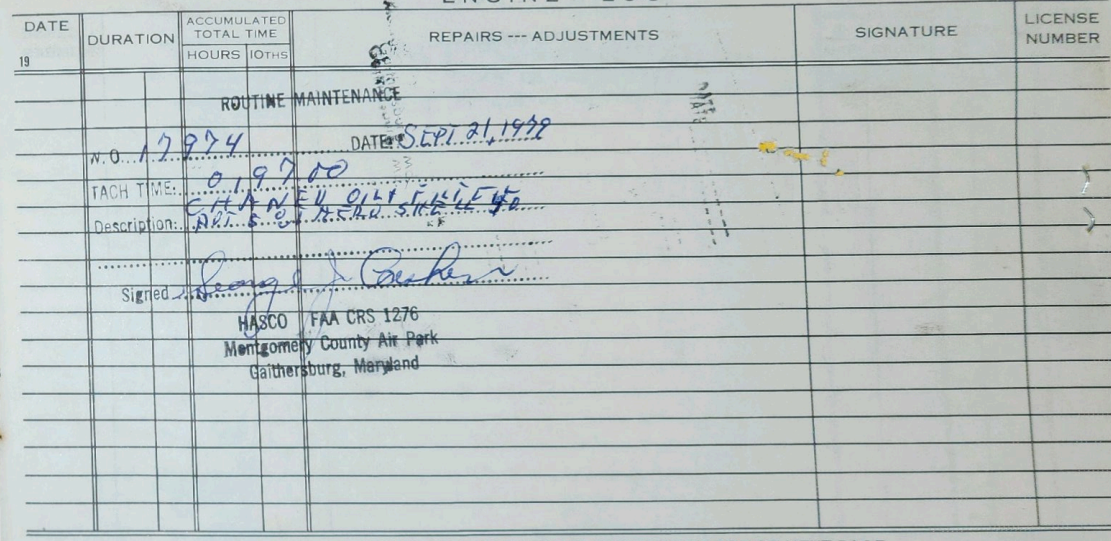 DATE
19
DURATION
ACCUMULATED
TOTAL TIME
HOURS 10THS
REPAIRS --- ADJUSTMENTS
SIGNATURE
LICENSE
NUMBER
ROUTINE MAINTENANCE
W.O. 17974 DATE: SEPT 21, 1979
TACH TIME: 019700
Description: CHANED OIL & FILTER
SHELL
Signed George J
HASCO FAA CRS 1276
Montgomery County Air Park
Gaithersburg, Maryland